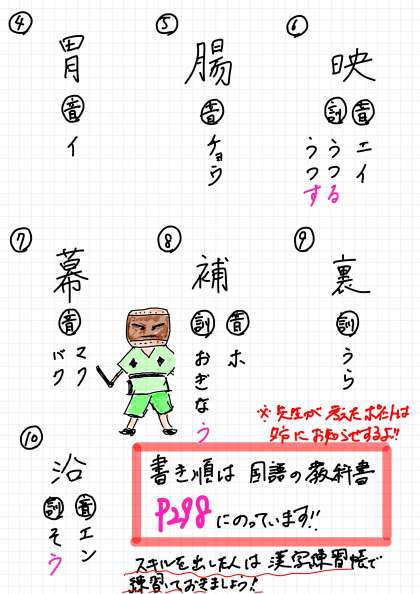 ④
胃
音
イ
⑤
腸
音
チョウ
⑥
映
音
エイ
訓
うつる
うつす
⑦
幕
音
マク
バク
⑧
補
音
ホ
訓
おぎなう
⑨
裏
訓
うら
⑩
沿
音
エン
訓
そう
※先生が考えたポイントは
夕方にお知らせするよ!!
書き順は 国語の教科書
P298にのっています!!
スキルを出した人は 漢字練習帳で
練習しておきましょう!